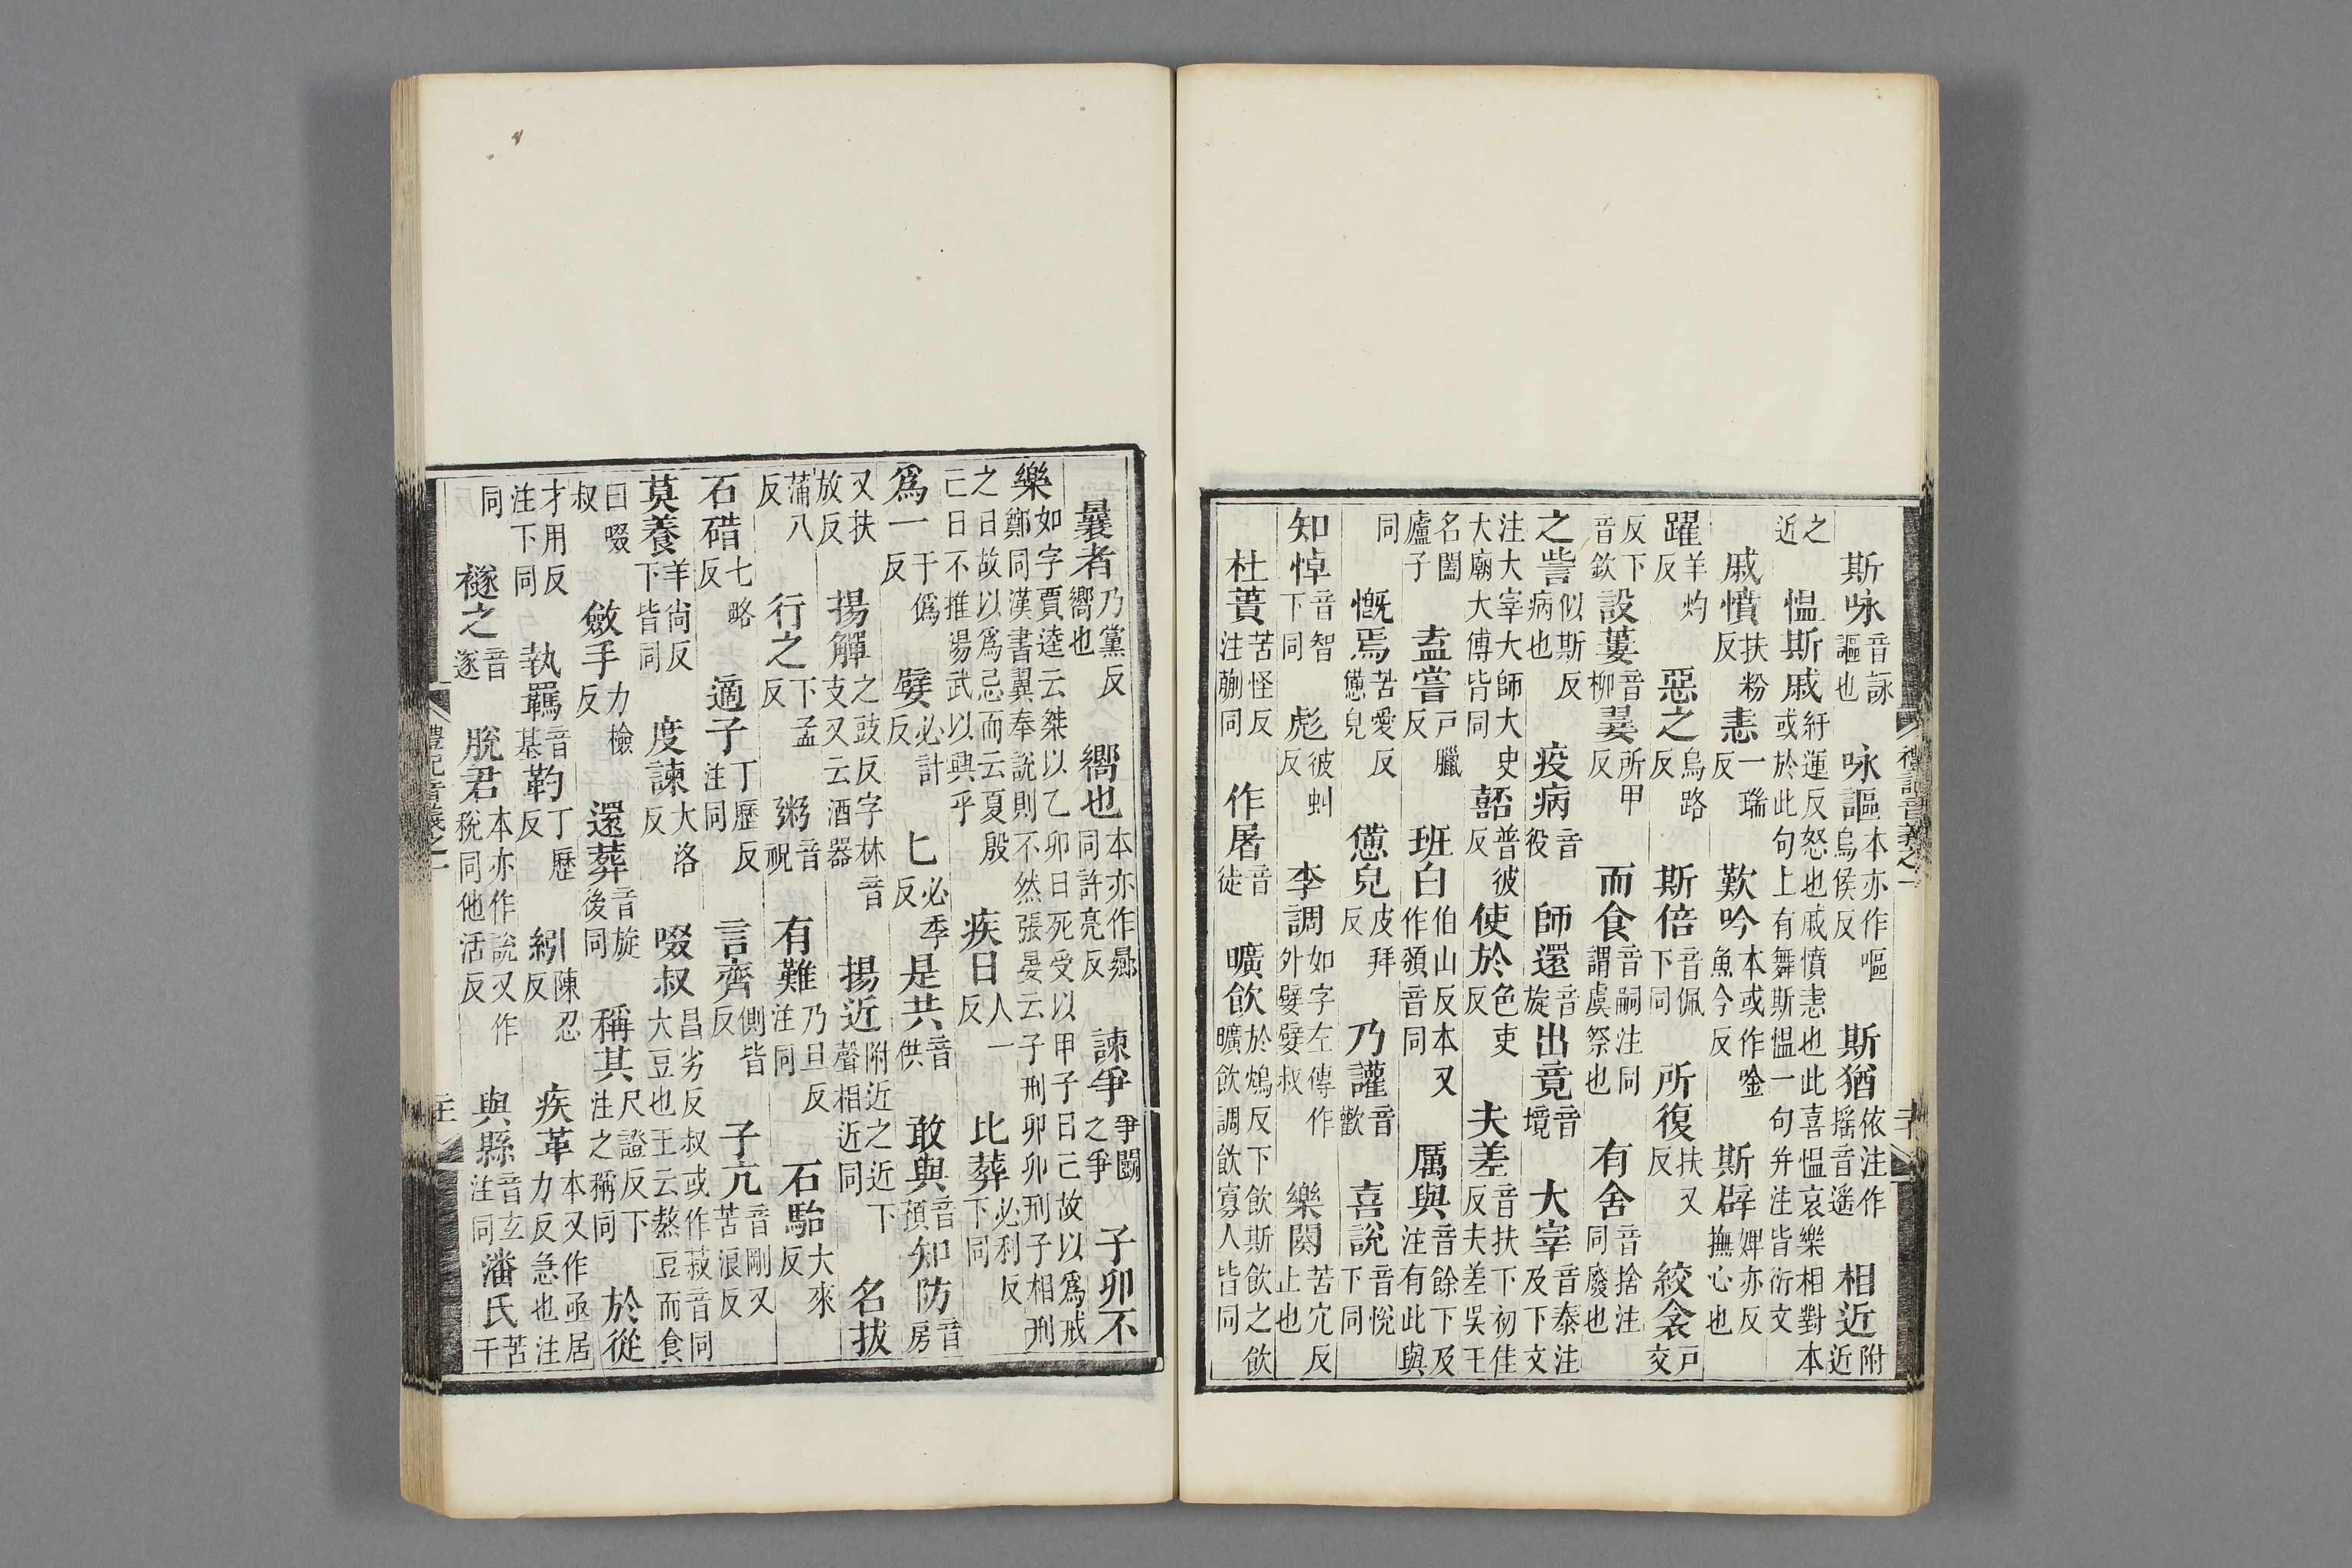 斯咏音詠謳也　咏謳本亦作嘔烏侯反　斯猶依注作搖音遙　相近附近
之近　慍斯戚紆運反怒也戚憤恚也此喜慍哀樂相對本或於此句上有舞斯慍一句并注皆衍文
戚憤扶粉反　恚一瑞反　歎吟本或作唫魚今反　斯辟婢亦反撫心也
躍羊灼反　惡之烏路反　斯倍音佩下同　所復扶又反　絞衾戶交
反下音欽　設蔞音柳　翣所甲反　而食音嗣注同謂虞祭也　有舍音捨注同廢也
之訾似斯反病也　疫病音役　師還音旋　出竟音境　大宰音泰注及下文
注大宰大師大史大廟大傅皆同　嚭普彼反　使於色吏反　夫差音扶下初佳反夫差吳王
名闔廬子　盍嘗戶臘反　班白伯山反本又作頒音同　厲與音餘下及注有此與
同　慨焉苦愛反憊皃　憊皃皮拜反　乃讙音歡　喜說音悅下同
知悼音智下同　彪彼虯反　李調如字左傳作外嬖嬖叔　樂闋苦穴反止也
杜蕢苦怪反注蒯同　作屠音徒　曠飲於鴆反下飲斯飲之飲曠飲調飲寡人皆同
禮記音義之一
曩者乃黨反嚮也　嚮也本亦作曏同許亮反　諫爭爭鬬之爭　子卯不
樂如字賈逵云桀以乙卯日死受以甲子日亡故以爲戒鄭同漢書翼奉說則不然張晏云子刑卯卯刑子相刑
之日故以爲忌而云夏殷亡日不推湯武以興乎　疾日人一反　比葬必利反下同
爲一于僞反　嬖必計反　匕必季反　是共音供　敢與音預　知防音房
又扶放反　揚觶之豉反字林音支又云酒器　揚近附近之近下聲相近同　名拔
蒲八反　行之下孟反　粥音祝　有難乃旦反注同　石駘大來反
石碏七略反　適子丁歷反注同　言齊側皆反　子亢音剛又苦浪反
莫養羊尚反下皆同　度諫大洛反　啜叔昌劣反叔或作菽音同大豆也王云熬豆而食
曰啜叔　斂手力檢反　還葬音旋後同　稱其尺證反下注之稱同　於從
才用反注下同　執羈音基　靮丁歷反　紖陳忍反　疾革本又作亟居力反急也注
同　襚之音遂　脫君本亦作說又作稅同他活反　與縣音玄注同　潘氏苦干
禮記音義之一